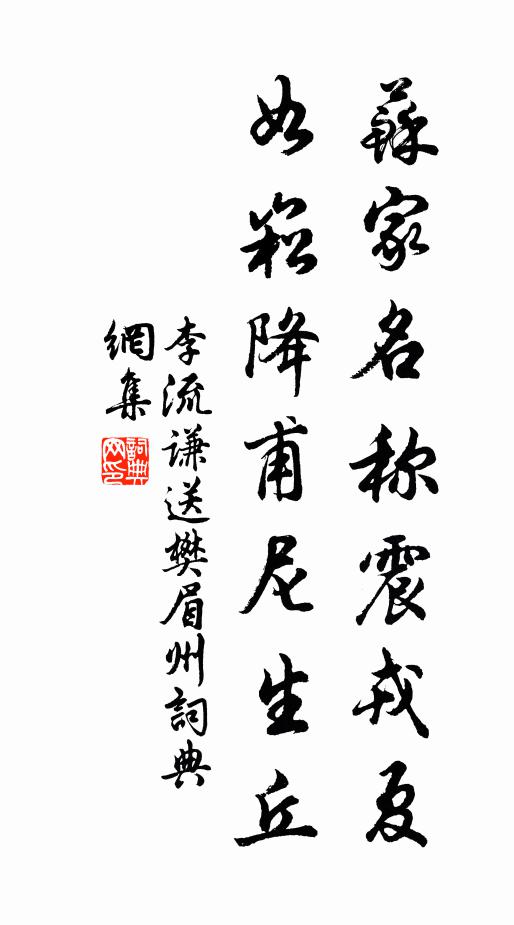 蘇家名称震戎夏
如崧降甫尼生丘
李流谦送樊眉州詞典
網集
詞典网印